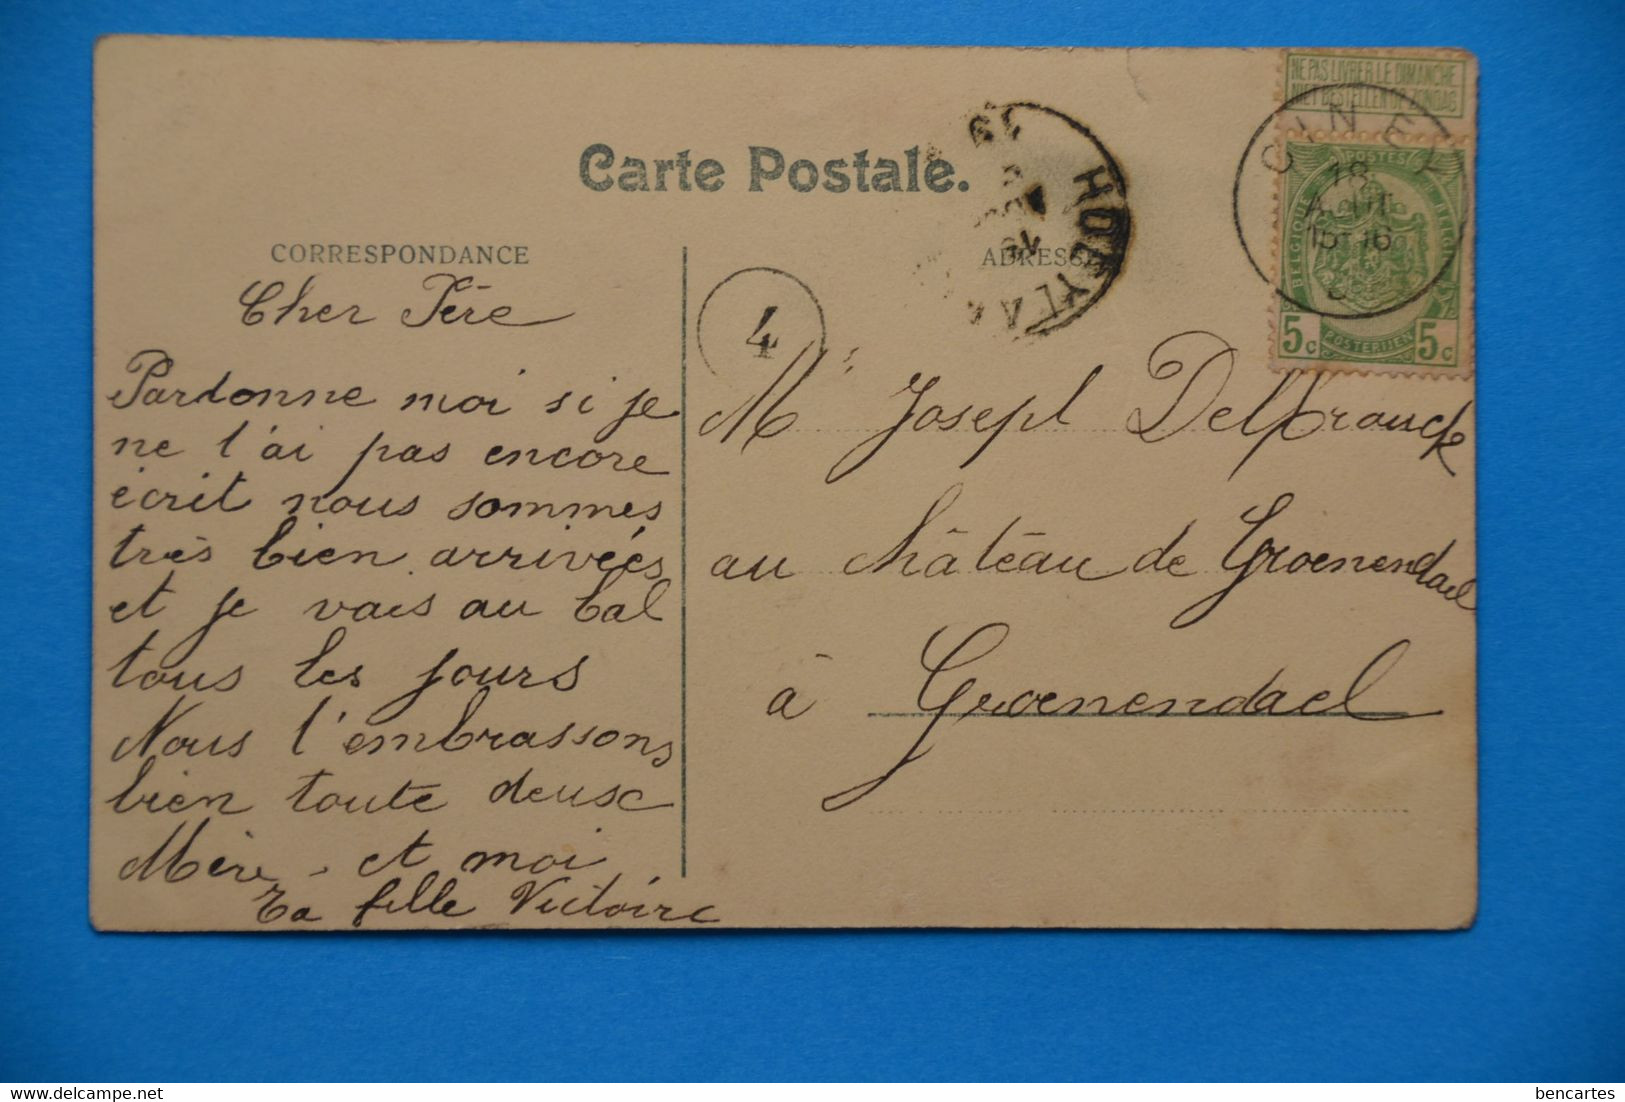 Carte Postale.
CORRESPONDANCE
ADRESSE
NE PAS LIVRER LE DIMANCHE
NIET BESTELLEN OP ZONDAG
CINEY
18
AOUT
15-16
POSTES
BELGIQUE
BELGIË
5c
POSTERIJEN
5c
4
Cher Père
Pardonne moi si je
ne l'ai pas encore
écrit nous sommes
très bien arrivées
et je vais au bal
tous les jours
Nous l'embrassons
bien toute deuse
Mère - et moi
Ta fille Victoire
Mr Joseph Delfrauck
au château de Groenendael
à Groenendael
bencartes